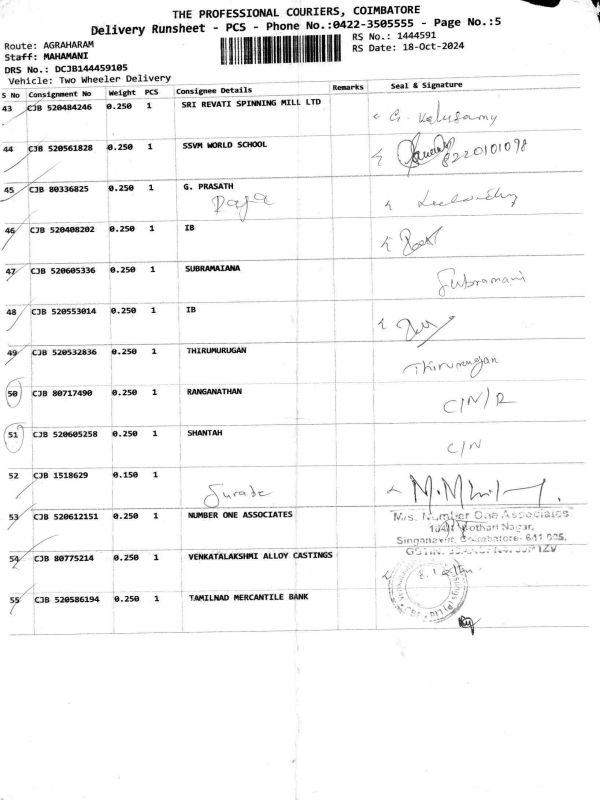 THE PROFESSIONAL COURIERS, COIMBATORE
Delivery Runsheet - PCS - Phone No.:0422-3505555 - Page No.:5
Route: AGRAHARAM RS No.: 1444591
Staff: MAHAMANI RS Date: 18-Oct-2024
DRS No.: DCJB144459105
Vehicle: Two Wheeler Delivery
S No Consignment No Weight PCS Consignee Details Remarks Seal & Signature
43 CJB 520484246 0.250 1 SRI REVATI SPINNING MILL LTD
44 CJB 520561828 0.250 1 SSVM WORLD SCHOOL 8220101098
45 CJB 80336825 0.250 1 G. PRASATH
Raja
46 CJB 520408202 0.250 1 IB
47 CJB 520605336 0.250 1 SUBRAMAIANA
Subramani
48 CJB 520553014 0.250 1 IB
49 CJB 520532836 0.250 1 THIRUMURUGAN
Thirumurugan
50 CJB 80717490 0.250 1 RANGANATHAN C/N/R
51 CJB 520605258 0.250 1 SHANTAH
C/N
52 CJB 1518629 0.150 1
53 CJB 520612151 0.250 1 NUMBER ONE ASSOCIATES M/s. Number One Associates
Kothari Nagar,
Singanallur, Coimbatore- 641 005.
54 CJB 80775214 0.250 1 VENKATALAKSHMI ALLOY CASTINGS
55 CJB 520586194 0.250 1 TAMILNAD MERCANTILE BANK